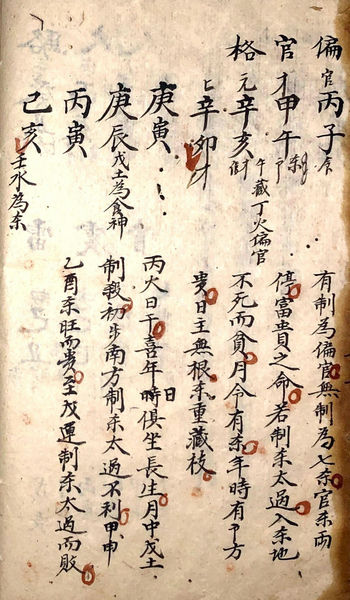 偏官丙子
官才甲午
格元辛亥
午藏丁火偏官
辛卯才
庚寅
庚辰戊土為食神
丙寅
己亥壬水為杀
有制為偏官無制為七杀官杀兩
停富貴之命若制杀太過入杀地
不死而貧月令有杀年時有
方
貴日主無根杀重藏枝
丙火日干喜年日時俱坐長生月中戊土
制我初步南方制杀太過不利甲申
乙酉杀旺而貴至戊運制杀太過而敗